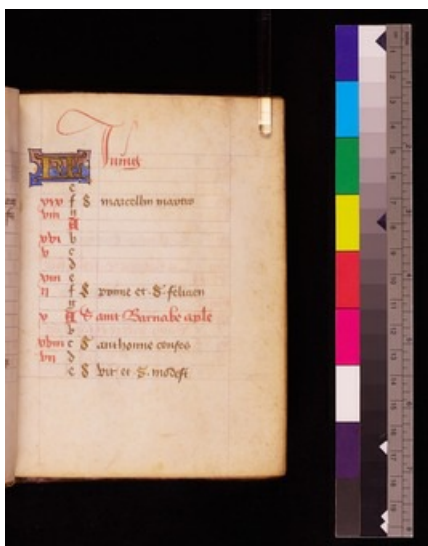 Iunius
KL
e
xix f S marcellin martir
viii g
A
xvi b
v c
d
xiii e
ii f S prime et S felicien
g
x A S aint Barnabe aple
b
xviii c S anthonne confes
vii d
e S vit et S modest